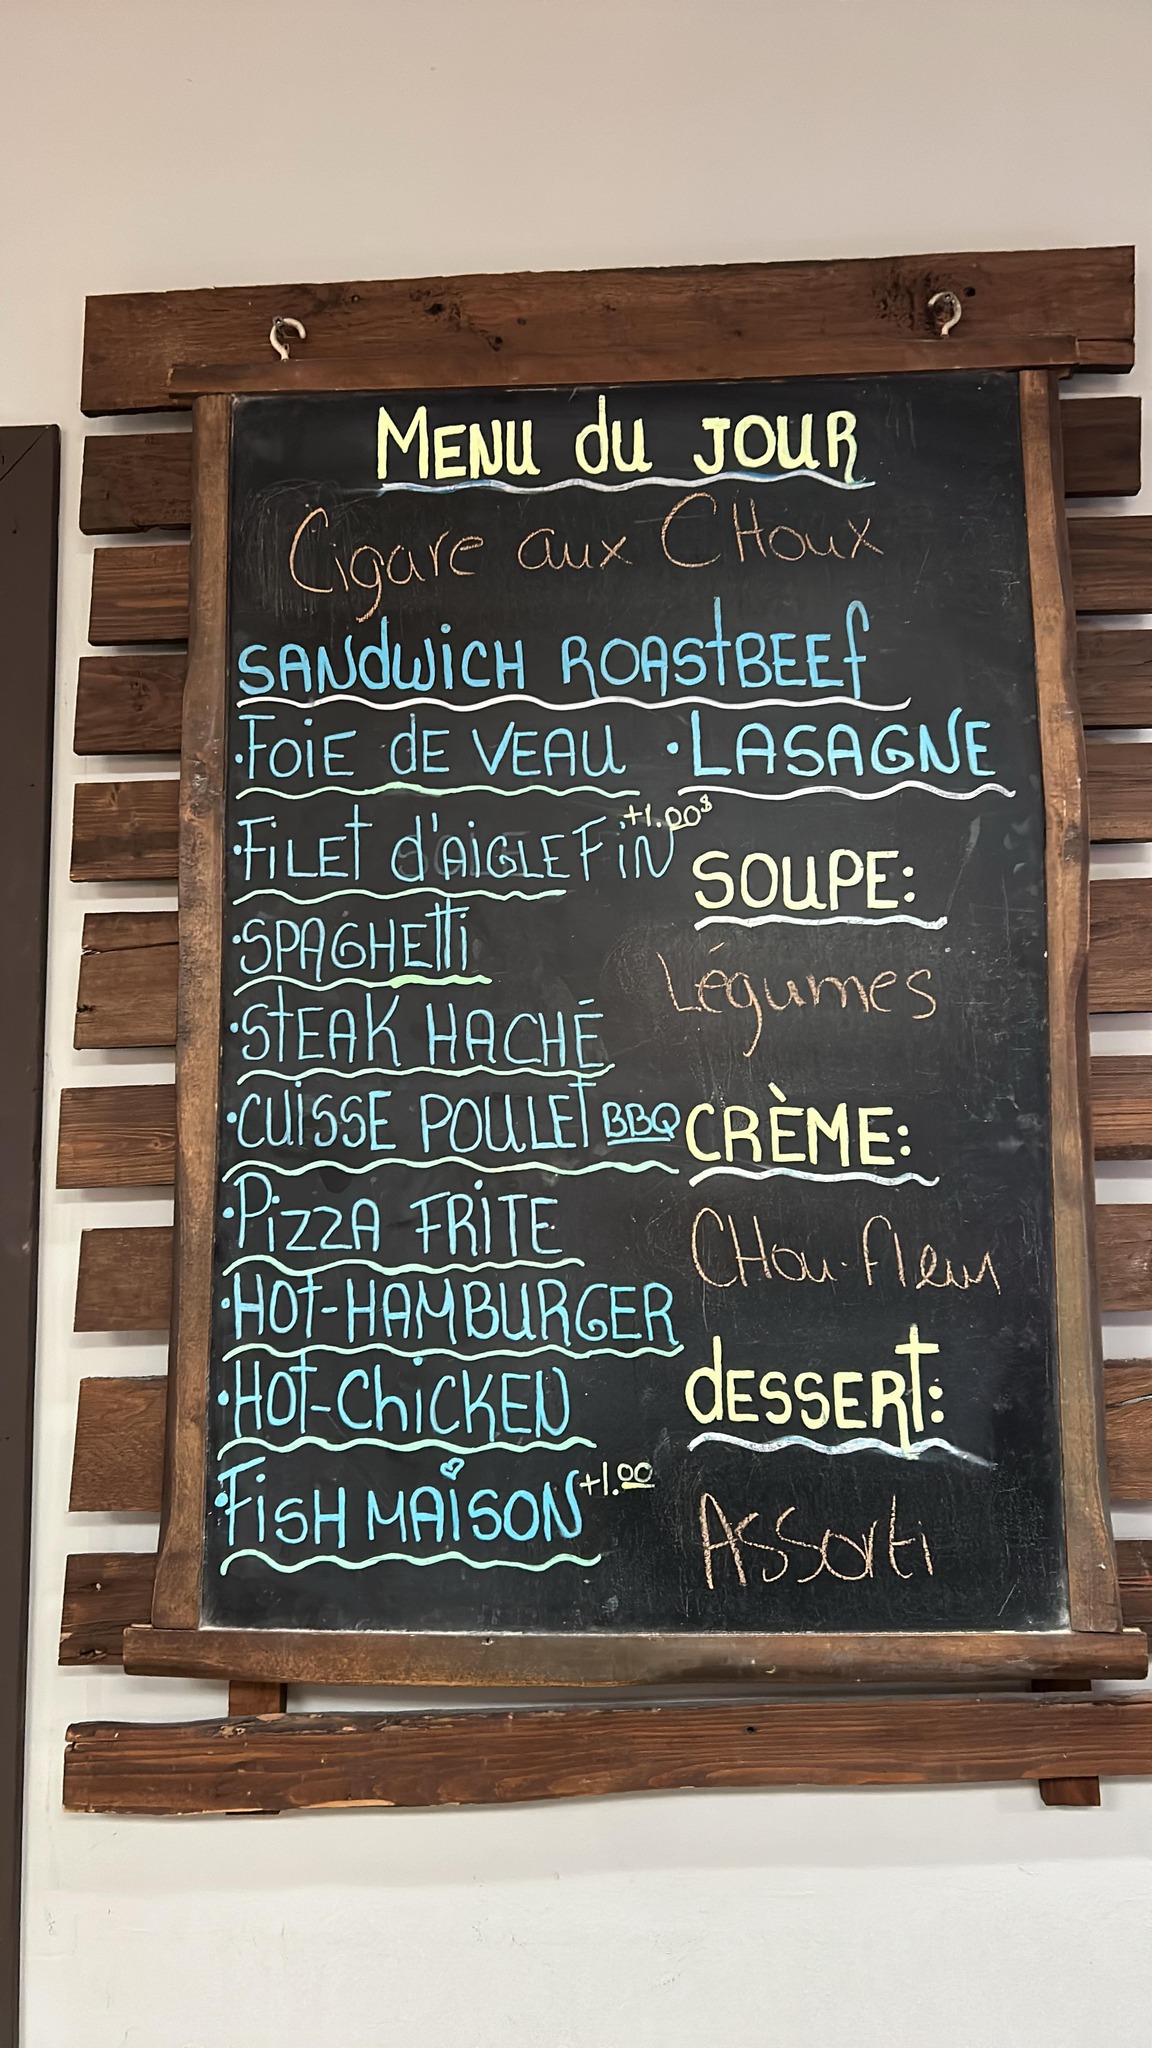 MENU du JOUR
Cigare aux CHoux
SANdwiCH ROAStBEEf
·FOiE dE VEAU
·LASAGNE
·FiLEt d'AiGLEFiN +1.00$
·SPAGHEtti
·StEAK HACHÉ
·CUiSSE POULEt BBQ
·PiZZA FRiTE
·HOt-HAMBURGER
·HOt-CHiCKEN
·FiSH MAiSON +1.00
SOUPE:
Légumes
CRÈME:
CHou-fleur
dESSERt:
ASSorti